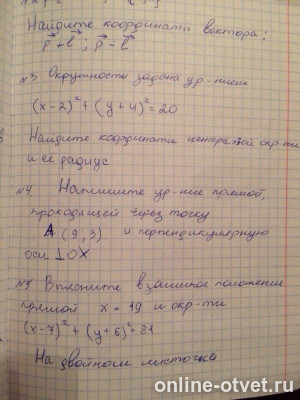 Найдите координаты вектора:
p + l ; p = l
№3 Окружность задана ур-нием
(x-2)² + (y+4)² = 20
Найдите координаты центра этой окр-ти
и её радиус
№4 Напишите ур-ние прямой,
проходящей через точку
A (9, 3) и перпендикулярную
оси ⊥OX
№5 Выясните взаимное положение
прямой x = 19 и окр-ти
(x-7)² + (y+6)² = 81
На двойном листочке
online-otvet.ru